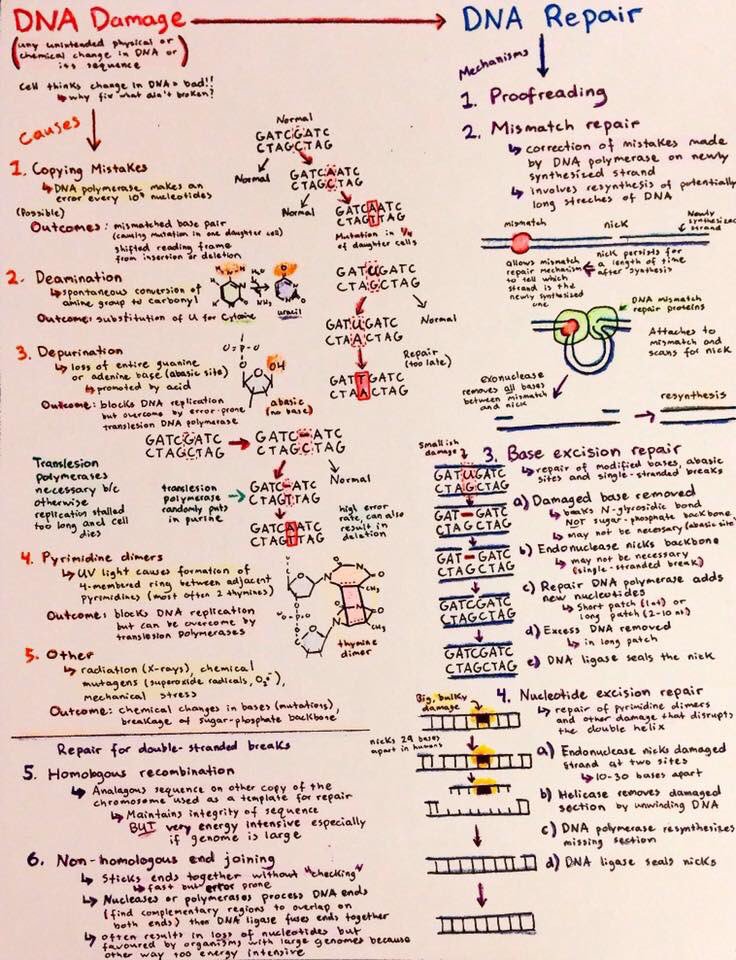 DNA Damage
(any unintended physical or
chemical change in DNA or
its sequence)
cell thinks change in DNA = bad!!
↳ why fix what ain't broken?
Causes
1. Copying Mistakes
↳ DNA polymerase makes an
error every 10⁹ nucleotides
(Possible)
Outcomes: mismatched base pair
(causing mutation in one daughter cell)
shifted reading frame
from insertion or deletion
Normal
GATCGATC
CTAGCTAG
Normal
GATCAATC
CTAGCTAG
Normal
GATCAATC
CTAGTTAG
Mutation in 1/4
of daughter cells
2. Deamination
↳ spontaneous conversion of
amine group to carbonyl
Outcome: substitution of U for Cytosine
H₂O
NH₃
uracil
GATUGATC
CTAGCTAG
GATUGATC
CTAACTAG
Normal
Repair
(too late)
GATTGATC
CTAACTAG
3. Depurination
↳ loss of entire guanine
or adenine base (abasic site)
↳ promoted by acid
Outcome: blocks DNA replication
but overcome by error-prone
translesion DNA polymerase
OH
abasic
(no base)
GATCGATC
CTAGCTAG
GATC-ATC
CTAGCTAG
Normal
Translesion
polymerases
necessary b/c
otherwise
replication stalled
too long and cell
dies
translesion
polymerase
randomly puts
in purine
GATC-ATC
CTAGTTAG
GATCAATC
CTAGTTAG
high error
rate, can also
result in
deletion
4. Pyrimidine dimers
↳ UV light causes formation of
4-membered ring between adjacent
pyrimidines (most often 2 thymines)
Outcome: blocks DNA replication
but can be overcome by
translesion polymerases
CH₃
CH₃
thymine
dimer
5. Other
↳ radiation (X-rays), chemical
mutagens (superoxide radicals, O₂⁻),
mechanical stress
Outcome: chemical changes in bases (mutations),
breakage of sugar-phosphate backbone
Repair for double-stranded breaks
5. Homologous recombination
↳ Analagous sequence on other copy of the
chromosome used as a template for repair
↳ Maintains integrity of sequence
BUT very energy intensive especially
if genome is large
6. Non-homologous end joining
↳ Sticks ends together without "checking"
↳ fast but error prone
↳ Nucleases or polymerases process DNA ends
(find complementary regions to overlap on
both ends) then DNA ligase fuses ends together
↳ often results in loss of nucleotides but
favoured by organisms with large genomes because
other way too energy intensive
DNA Repair
Mechanisms
1. Proofreading
2. Mismatch repair
↳ correction of mistakes made
by DNA polymerase on newly
synthesized strand
↳ involves resynthesis of potentially
long streches of DNA
mismatch
nick
Newly synthesized
strand
allows mismatch
repair mechanism
to tell which
strand is the
newly synthesized
one
nick persists for
a length of time
after synthesis
DNA mismatch
repair proteins
Attaches to
mismatch and
scans for nick
exonuclease
removes all bases
between mismatch
and nick
resynthesis
3. Base excision repair
↳ repair of modified bases, abasic
sites and single-stranded breaks
Smallish
damage
GATUGATC
CTAGCTAG
a) Damaged base removed
↳ breaks N-glyrosidic bond
NOT sugar-phosphate backbone
↳ may not be necessary (abasic site)
GAT-GATC
CTAGCTAG
b) Endonuclease nicks backbone
↳ may not be necessary
(single-stranded break)
GAT-GATC
CTAGCTAG
c) Repair DNA polymerase adds
new nucleotides
↳ Short patch (1nt) or
long patch (2-10 nt)
GATCGATC
CTAGCTAG
d) Excess DNA removed
↳ in long patch
GATCGATC
CTAGCTAG
e) DNA ligase seals the nick
4. Nucleotide excision repair
↳ repair of pyrimidine dimers
and other damage that disrupts
the double helix
Big, bulky
damage
nicks 29 bases
apart in humans
a) Endonuclease nicks damaged
strand at two sites
↳ 10-30 bases apart
b) Helicase removes damaged
section by unwinding DNA
c) DNA polymerase resynthesizes
missing section
d) DNA ligase seals nicks